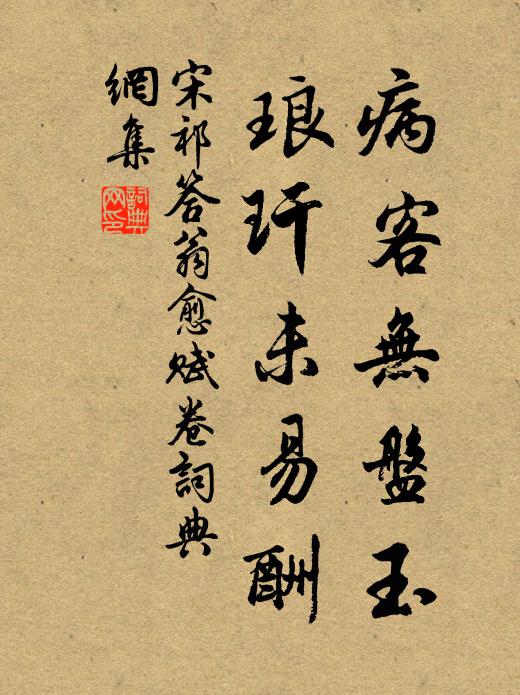 病客無盤玉
琅玕未易酬
宋祁答翁愈賦卷詞典
網集
詞典網印